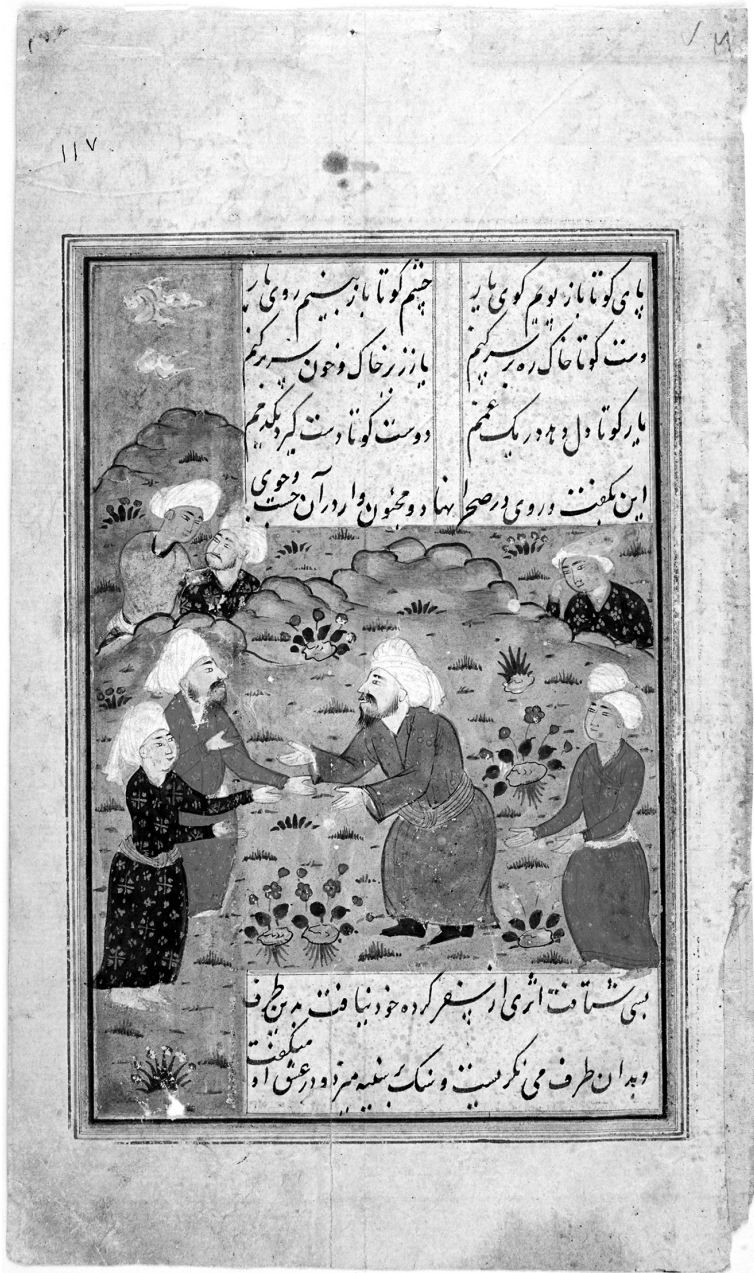 ۱۱۷
پای کو تا باز پویم کوی یار چشم کو تا باز بینم روی یار
دست کو تا خاک ره بر سر کنم یا ز زیر خاک و خون سر بر کنم
یار کو تا دل دهد در یک غمم دوست کو تا دست گیرد یکدمم
این بگفت و روی در صحرا نهاد و مجنون وار در آن جست و جوی
بسی شتافت اثری از سفر کرده خود نیافت بدین طرف
و بدان طرف می نگریست و سنگ بر سینه میزد و در عشق او میگفت